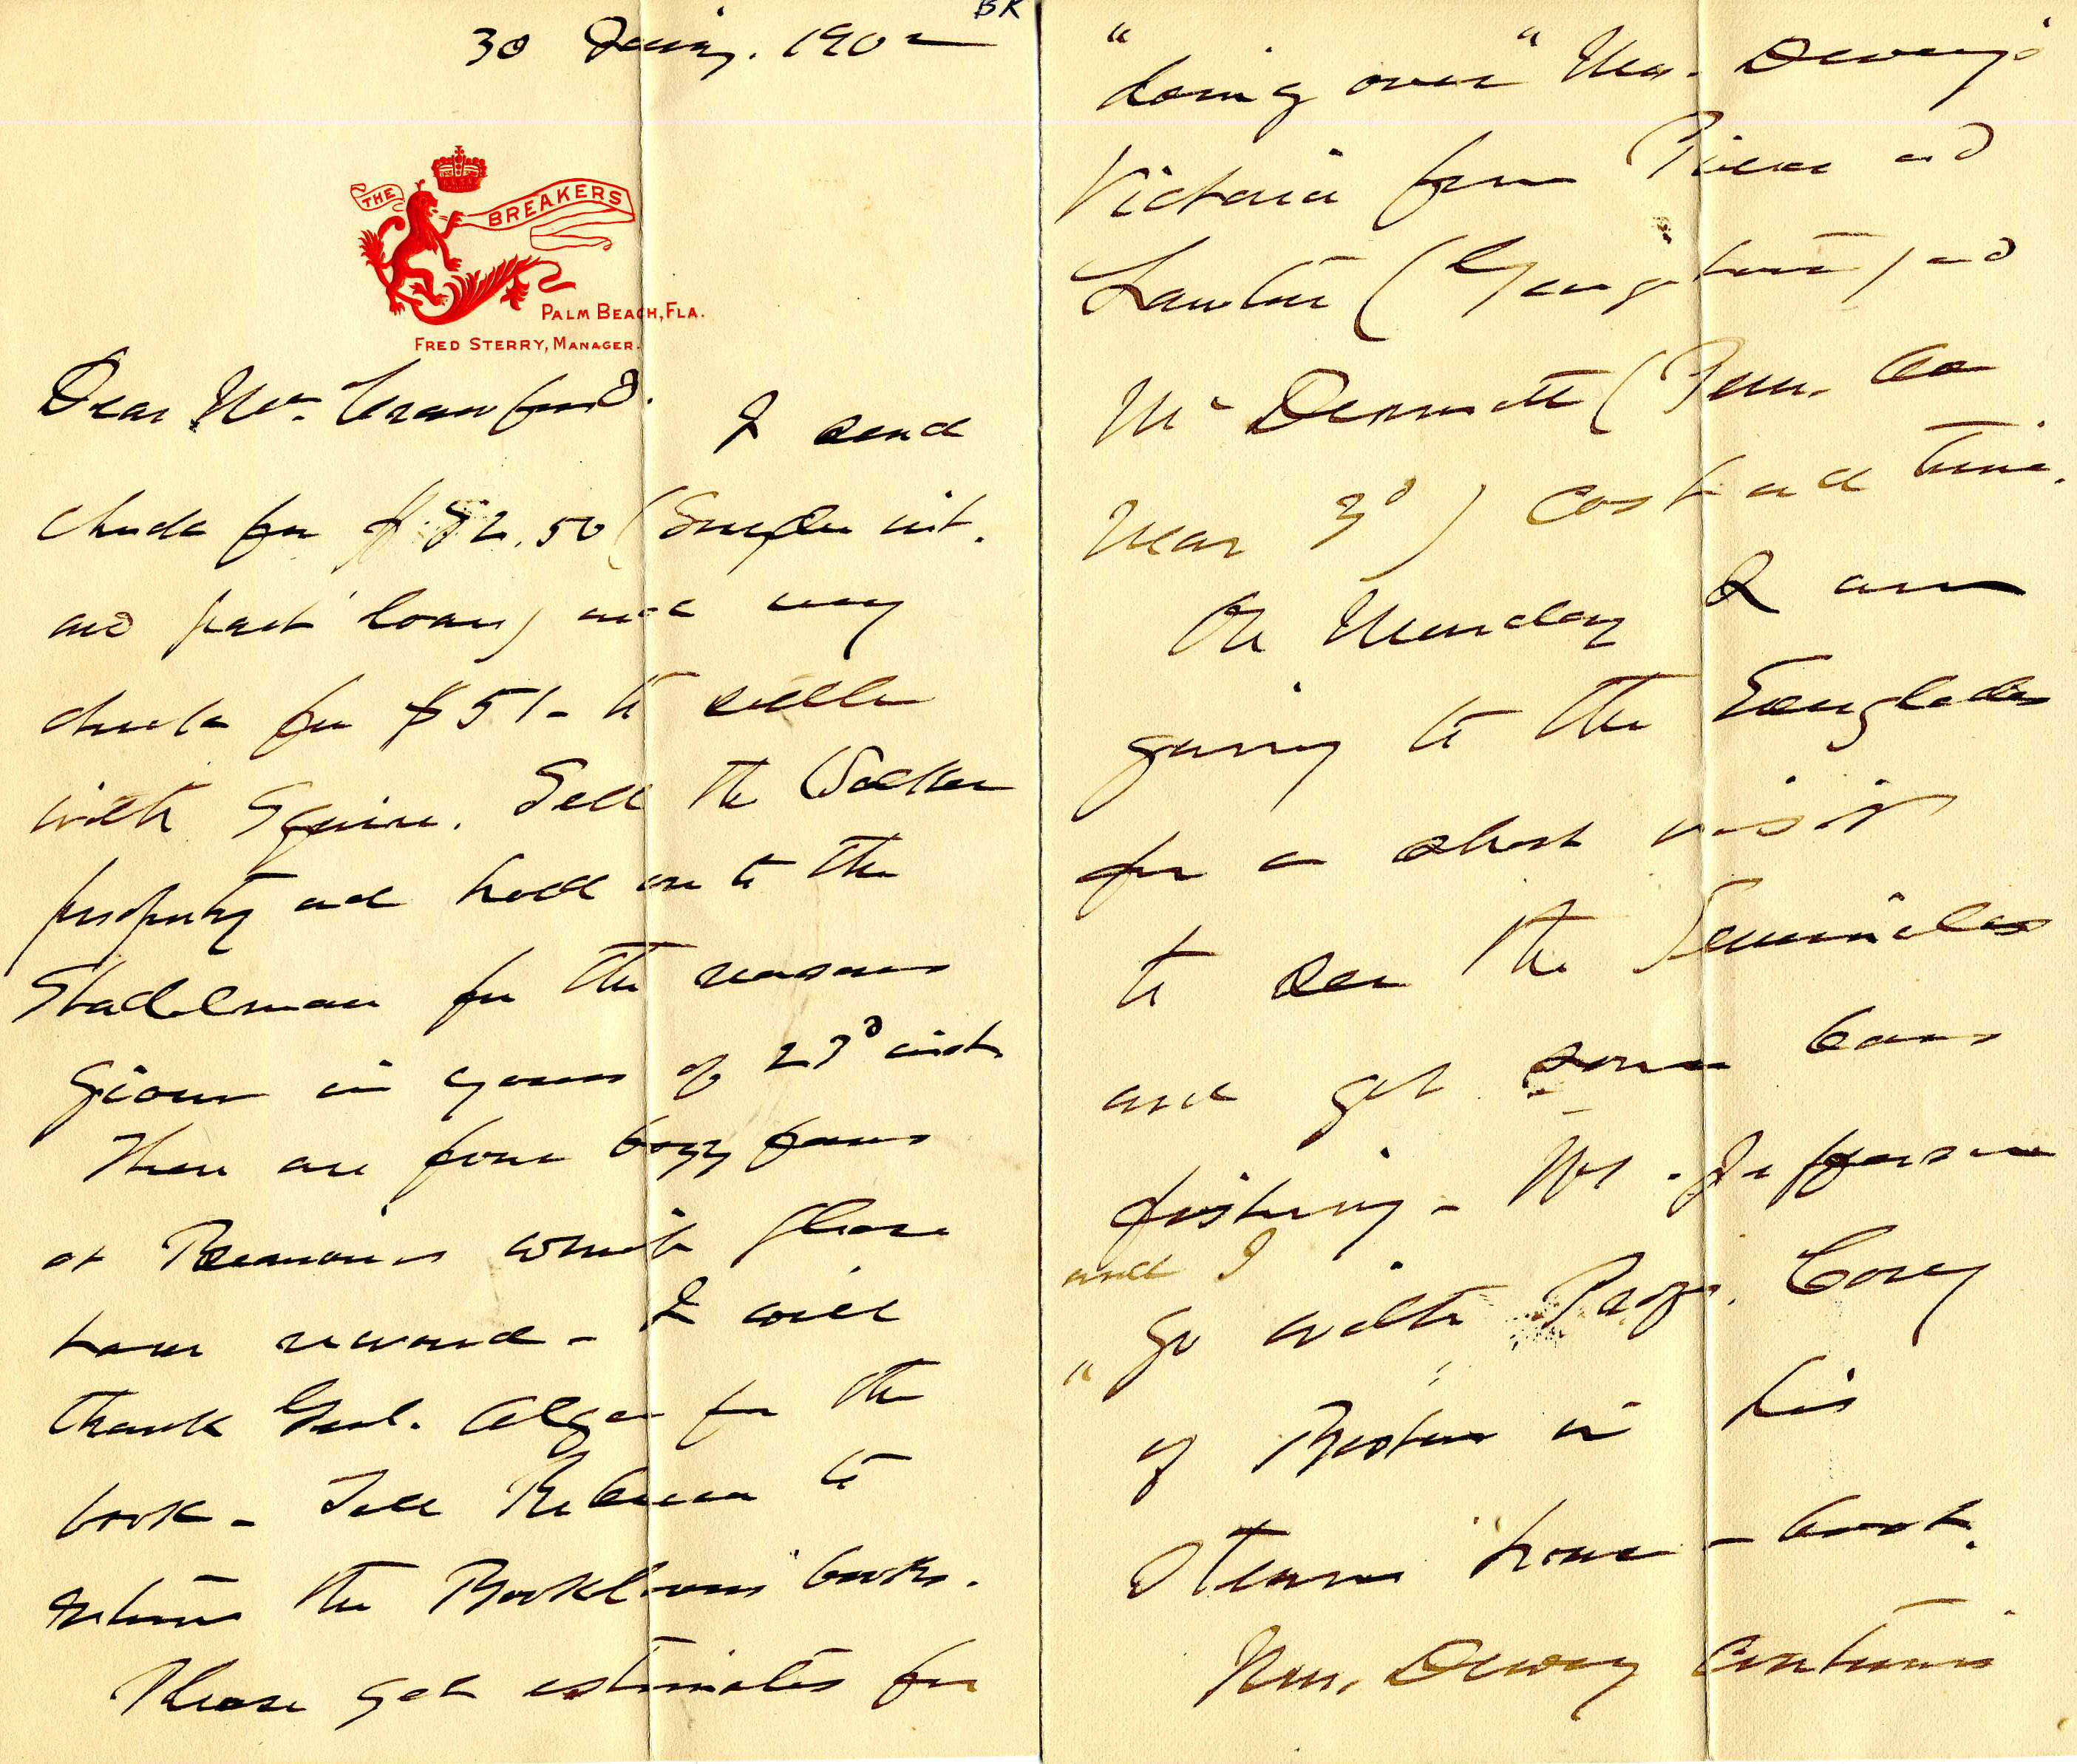 BK
30 Jany. 1902
THE BREAKERS
PALM BEACH, FLA.
FRED STERRY, MANAGER.
Dear Mr. Crawford.
I send
check for $52.50 ( int.
and part loan) and my
check for $51- to settle
with Squire. Sell the Walker
property and hold on to the
Stadelman for the reasons
given in yours of 23d inst
There are four buggy
at which please
have - I will
thank Genl. Alger for the
book - Tell Rebecca to
return the Booklovers books.
Please get estimates for
"doing over" Mrs. Dewey's
Victoria from and
( ) and
McDermott (Penn. Ave
near 3d) cost and time.
On Monday I am
going to the Everglades
for a short visit
to see the Seminoles
and get some bass
fishing - Mr. Jefferson
and I
" go with Prof. Cory
of Boston in his
steam house-boat.
Mrs. Dewey continues